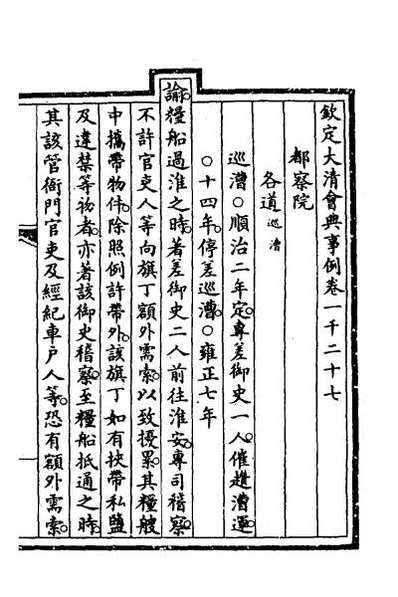 欽定大清會典事例卷一千二十七
都察院
各道巡漕
巡漕○順治二年定。專差御史一人。催趲漕運。
○十四年。停差巡漕。○雍正七年
諭。糧船過淮之時。著差御史二人前往淮安。專司稽察。
不許官吏人等向旗丁額外需索。以致擾累。其糧艘
中攜帶物件。除照例許帶外。該旗丁如有挾帶私鹽
及違禁等物者。亦著該御史稽察。至糧船抵通之時。
其該管衙門官吏及經紀車戶人等。恐有額外需索。